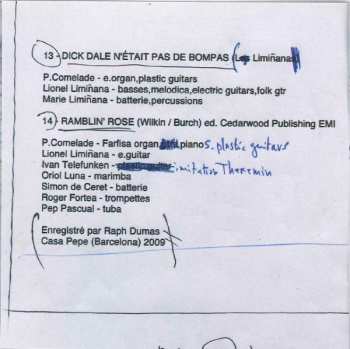 13 - DICK DALE N'ÉTAIT PAS DE BOMPAS (Les Limiñanas)
P.Comelade - e.organ,plastic guitars
Lionel Limiñana - basses,melodica,electric guitars,folk gtr
Marie Limiñana - batterie,percussions
14 - RAMBLIN' ROSE (Wilkin / Burch) ed. Cedarwood Publishing EMI
P.Comelade - Farfisa organ, pianos. plastic guitars
Lionel Limiñana - e.guitar
Ivan Telefunken - imitation Theremin
Oriol Luna - marimba
Simon de Ceret - batterie
Roger Fortea - trompettes
Pep Pascual - tuba
Enregistré par Raph Dumas
Casa Pepe (Barcelona) 2009